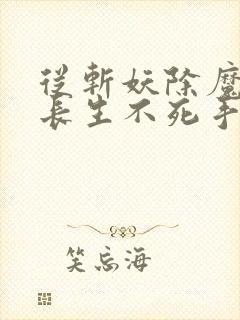 從斬妖除魔
長生不死手
笑忘海